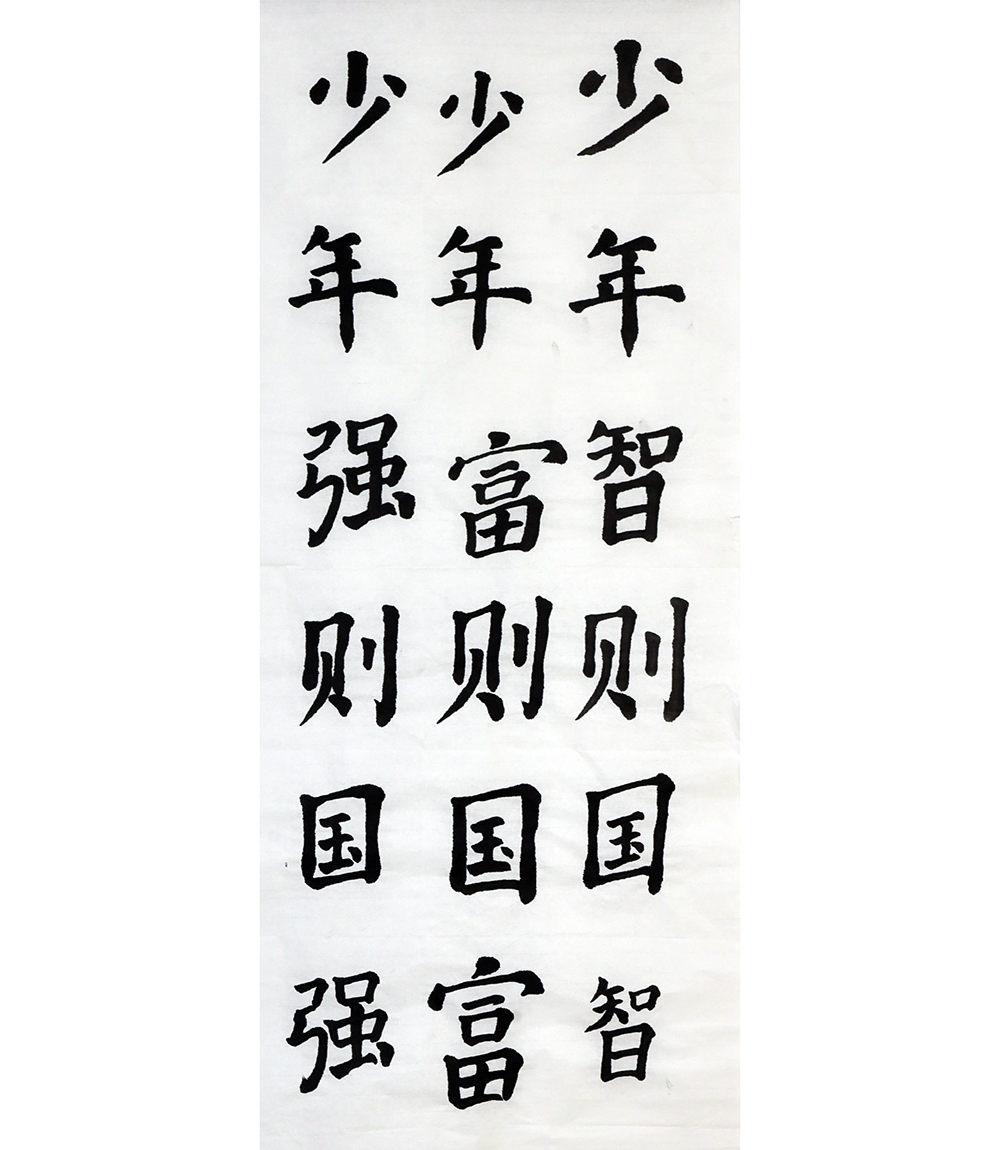 少年智则国智
少年富则国富
少年强则国强